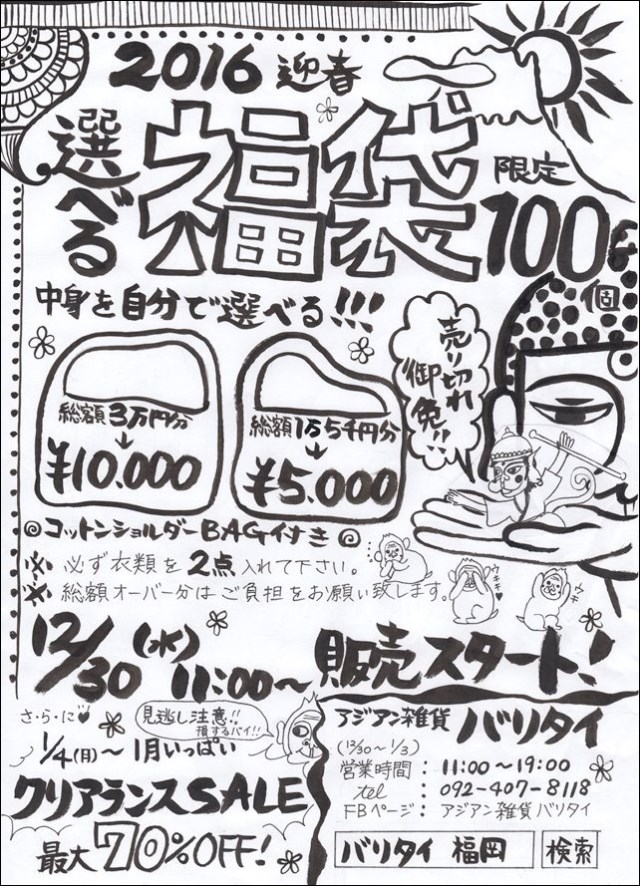 2016 迎春
選べる 福袋 限定100個
中身を自分で選べる!!!
売り切れ御免!!
総額3万円分
↓
¥10.000
総額1万5千円分
↓
¥5.000
◎コットンショルダーBAG付き◎
※ 必ず衣類を2点入れて下さい。
※ 総額オーバー分はご負担をお願い致します。
ウキキ♥
ウキキ
12/30(水) 11:00~ 販売スタート!
さ・ら・に♥
見逃し注意!!
損するバイ!!
1/4(月)~1月いっぱい
クリアランスSALE
最大70%OFF!
アジアン雑貨 バリタイ
(12/30~1/3)
営業時間:11:00~19:00
tel:092-407-8118
FBページ:アジアン雑貨バリタイ
バリタイ 福岡 検索